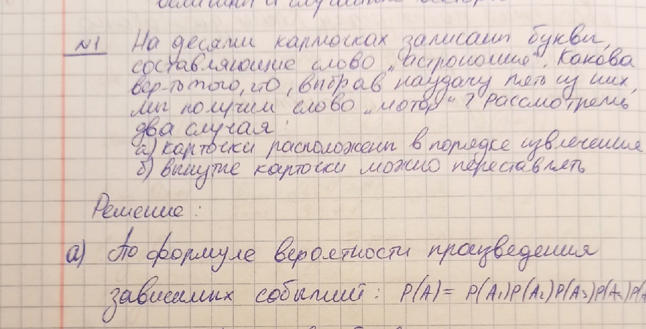 величины и случайные вектор
№1 На десяти карточках записаны буквы,
составляющие слово „астрономия". Какова
вер-ть того, что, выбрав наудачу пять из них,
мы получим слово „мотор"? Рассмотреть
два случая:
а) карточки расположены в порядке извлечения
б) вынутые карточки можно переставлять
Решение:
а) По формуле вероятности произведения
зависимых событий: P(A) = P(A₁)P(A₂)P(A₃)P(A₄)P(A